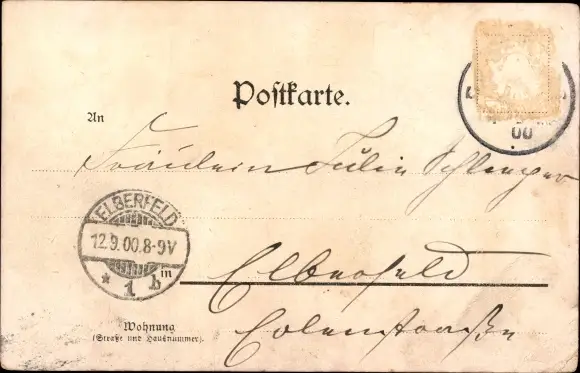 Postkarte.
00
An
Fräulein Julie Schlenger
ELBERFELD
12.9.00.8-9V
* 1 b
in Elberfeld
Wohnung
(Straße und Hausnummer).